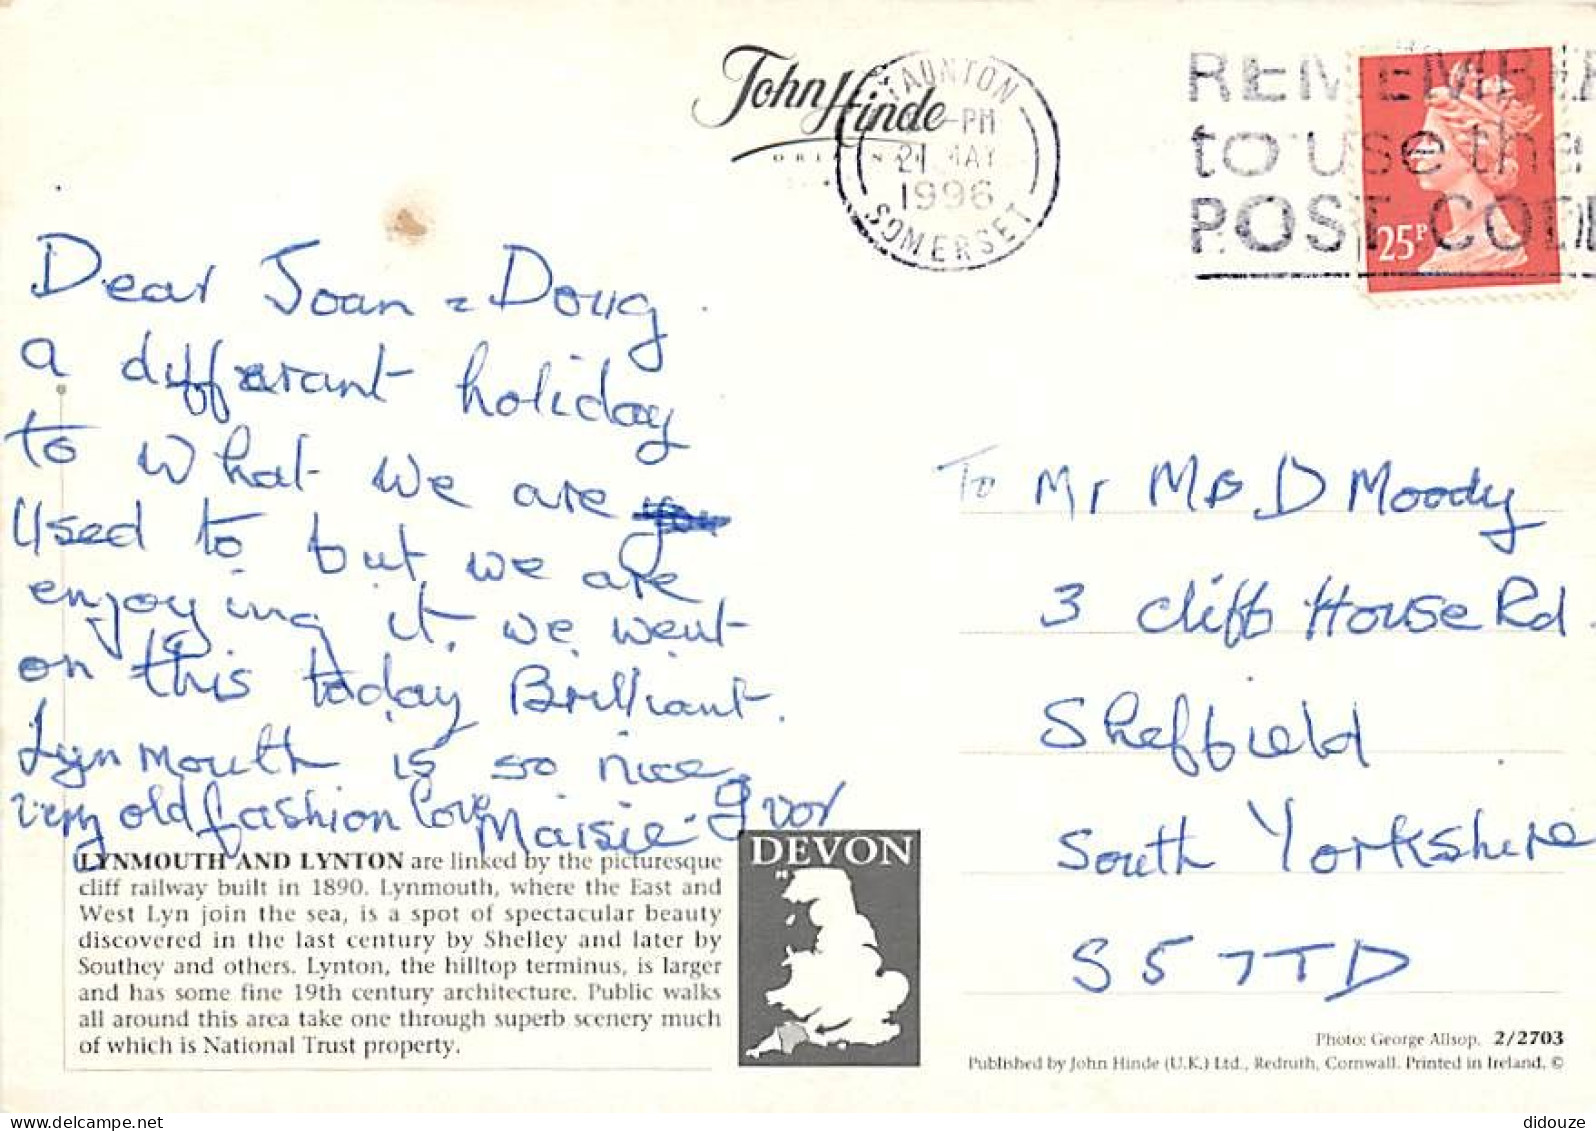 John Hinde
ORIGINAL
TAUNTON
-PM
21 MAY
1996
SOMERSET
REMEMBER
to use the
POST CODE
25P
Dear Joan & Doug.
a different holiday
to what we are
Used to but we are
enjoying it. we went
on this today Brilliant.
Lynmouth is so nice.
very old fashion love
Maisie - Ivor
To Mr Mrs D Moody
3 Cliff House Rd.
Sheffield
South Yorkshire
S5 7TD
LYNMOUTH AND LYNTON are linked by the picturesque
cliff railway built in 1890. Lynmouth, where the East and
West Lyn join the sea, is a spot of spectacular beauty
discovered in the last century by Shelley and later by
Southey and others. Lynton, the hilltop terminus, is larger
and has some fine 19th century architecture. Public walks
all around this area take one through superb scenery much
of which is National Trust property.
DEVON
Photo: George Allsop. 2/2703
Published by John Hinde (U.K.) Ltd., Redruth, Cornwall. Printed in Ireland. ©
didouze